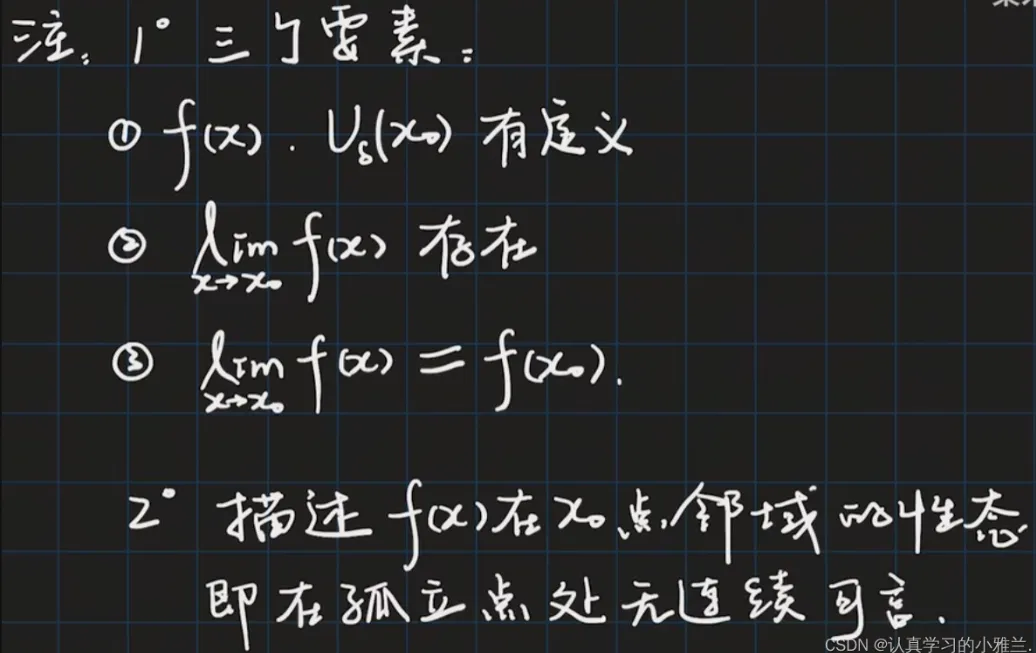 注: 1° 三个要素:
① f(x). U_δ(x₀) 有定义
② lim_{x→x₀} f(x) 存在
③ lim_{x→x₀} f(x) = f(x₀).
2° 描述 f(x) 在 x₀ 点邻域的性态
即在孤立点处无连续可言.
CSDN @认真学习的小雅兰.